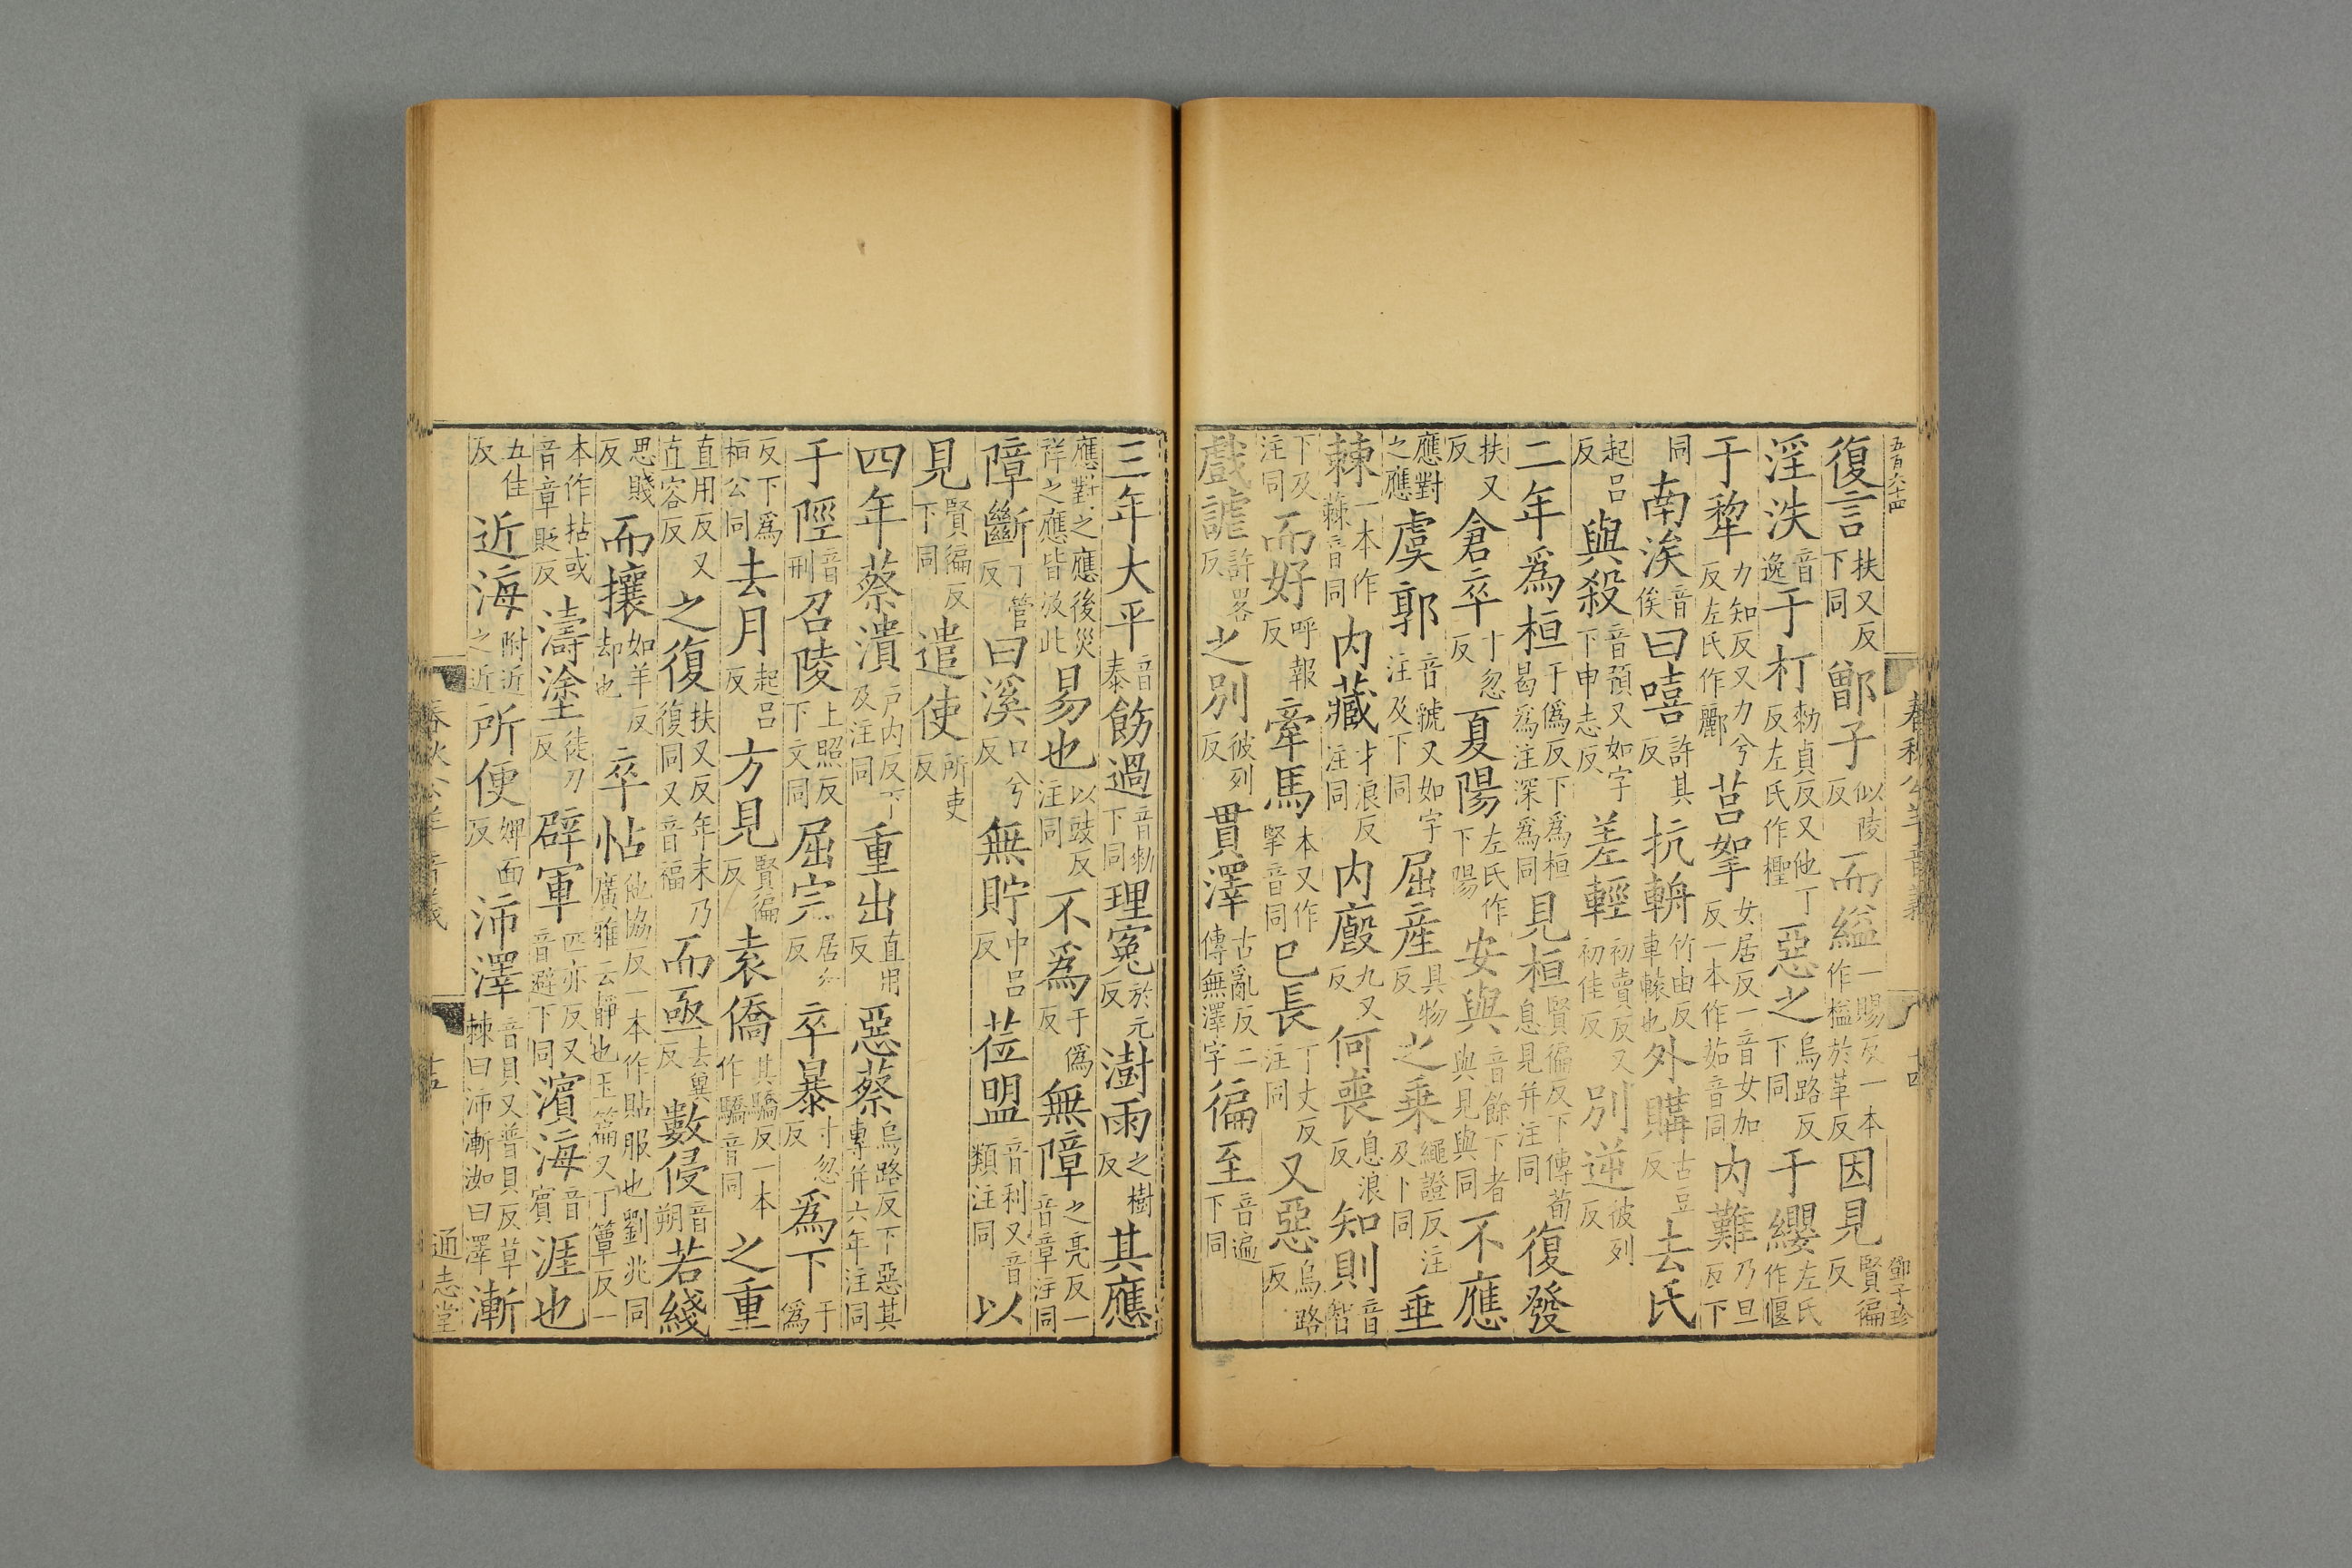 五百六十四
春秋公羊音義 十四
鄧子珍
復言扶又反下同鄫子似陵反而縊一賜反一本作搤於革反因見賢徧反
淫泆音逸于朾勑貞反又他丁反左氏作檉惡之烏路反下同于纓左氏作偃
于犂力知反又力兮反左氏作酈莒挐女居反一音女加反一本作茹音同内難乃旦反下
同南涘音俟曰嘻許其反抗輈竹由反車轅也外購古豆反去氏
起呂反與殺音預又如字下申志反差輕初賣反又初佳反别逆彼列反
二年爲桓于僞反下爲桓曷爲注深爲同見桓賢徧反下傳荀息見并注同復發
扶又反倉卒寸忽反夏陽左氏作下陽安與音餘下者與見與同不應
應對之應虞郭音虢又如字注及下同屈產具物反之乗繩證反注及下同垂
棘一本作蕀音同内藏才浪反注同内廏九又反何喪息浪反知則音智
下及注同而好呼報反牽馬本又作掔音同已長丁丈反注同又惡烏路反
戲謔許畧反之别彼列反貫澤古亂反二傳無澤字徧至音遍下同
三年大平音泰飭過音勑下同理冤於元反澍雨之樹反其應
應對之應後災祥之應皆放此易也以豉反注同不爲于僞反無障之亮反一音章注同
障斷丁管反曰溪口兮反無貯中呂反莅盟音利又音類注同以
見賢徧反下同遣使所吏反
四年蔡潰戸内反下及注同重出直用反惡蔡烏路反下惡其專并六年注同
于陘音刑召陵上照反下文同屈完居勿反卒暴寸忽反爲下于僞
反下爲桓公同去月起呂反方見賢徧反袁僑其驕反一本作驕音同之重
直用反又直容反之復扶又反年末乃復同又音福而亟去冀反數侵音朔若綫
思賤反而攘如羊反却也卒帖他協反一本作貼服也劉兆同廣雅云靜也玉篇又丁簟反一
本作拈或音章貶反濤塗徒刀反辟軍匹亦反又音避下同濱海音賓涯也
五佳反近海附近之近所便婢面反沛澤音貝又普貝反草棘曰沛漸洳曰澤漸
春秋公羊音義 十五
通志堂